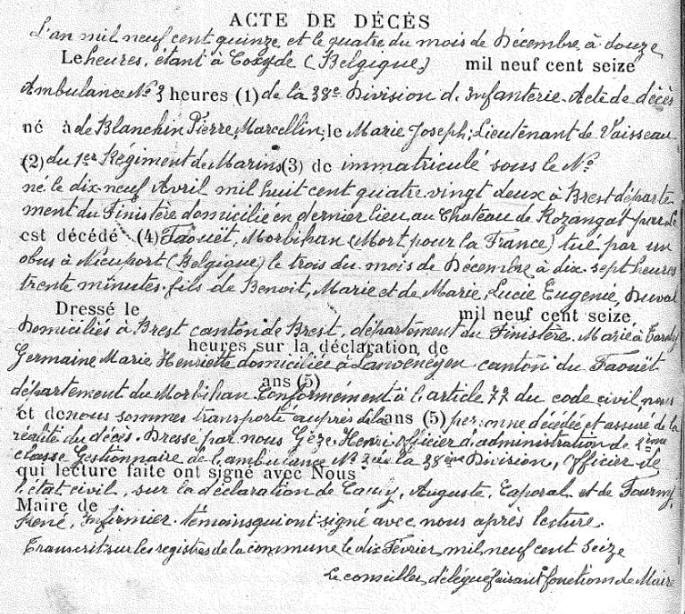 ACTE DE DÉCÈS
L'an mil neuf cent quinze et le quatre du mois de Décembre à douze
Le heures, étant à Coxyde (Belgique) mil neuf cent seize
Ambulance No 3 heures (1) de la 38e Division d'Infanterie. Acte de décès
né à de Blanchin Pierre, Marcellin, le Marie Joseph, Lieutenant de Vaisseau
(2) du 1er Régiment de Marins (3) de immatriculé sous le No
né le dix neuf Avril mil huit cent quatre vingt deux à Brest départe-
ment du Finistère domicilié en dernier lieu au Chateau de Rozangat par Le
est décédé (4) Faouët, Morbihan (Mort pour la France) tué par un
obus à Nieuport (Belgique) le trois du mois de Décembre à dix sept heures
trente minutes. fils de Benoit, Marie et de Marie, Lucie Eugénie, Duval
Dressé le mil neuf cent seize
Domiciliés à Brest canton de Brest, département du Finistère. Marié à
heures sur la déclaration de
Germaine Marie Henriette domiciliée à Lanvenegen canton du Faouët
ans (5)
département du Morbihan. Conformément à l'article 77 du code civil, nous
et de nous sommes transporté auprès de la ans (5) personne décédée et assuré de la
réalité du décès. Dressé par nous Gèze Henri officier d'administration de 2ème
classe Gestionnaire de l'ambulance No 3 de la 38ème Division, Officier de
qui lecture faite ont signé avec Nous
l'état civil, sur la déclaration de Auguste, Caporal et de
Maire de
René, Infirmier. témoins qui ont signé avec nous après lecture.
Transcrit sur les registres de la commune le dix Février mil neuf cent seize
Le conseiller délégué faisant fonctions de Maire